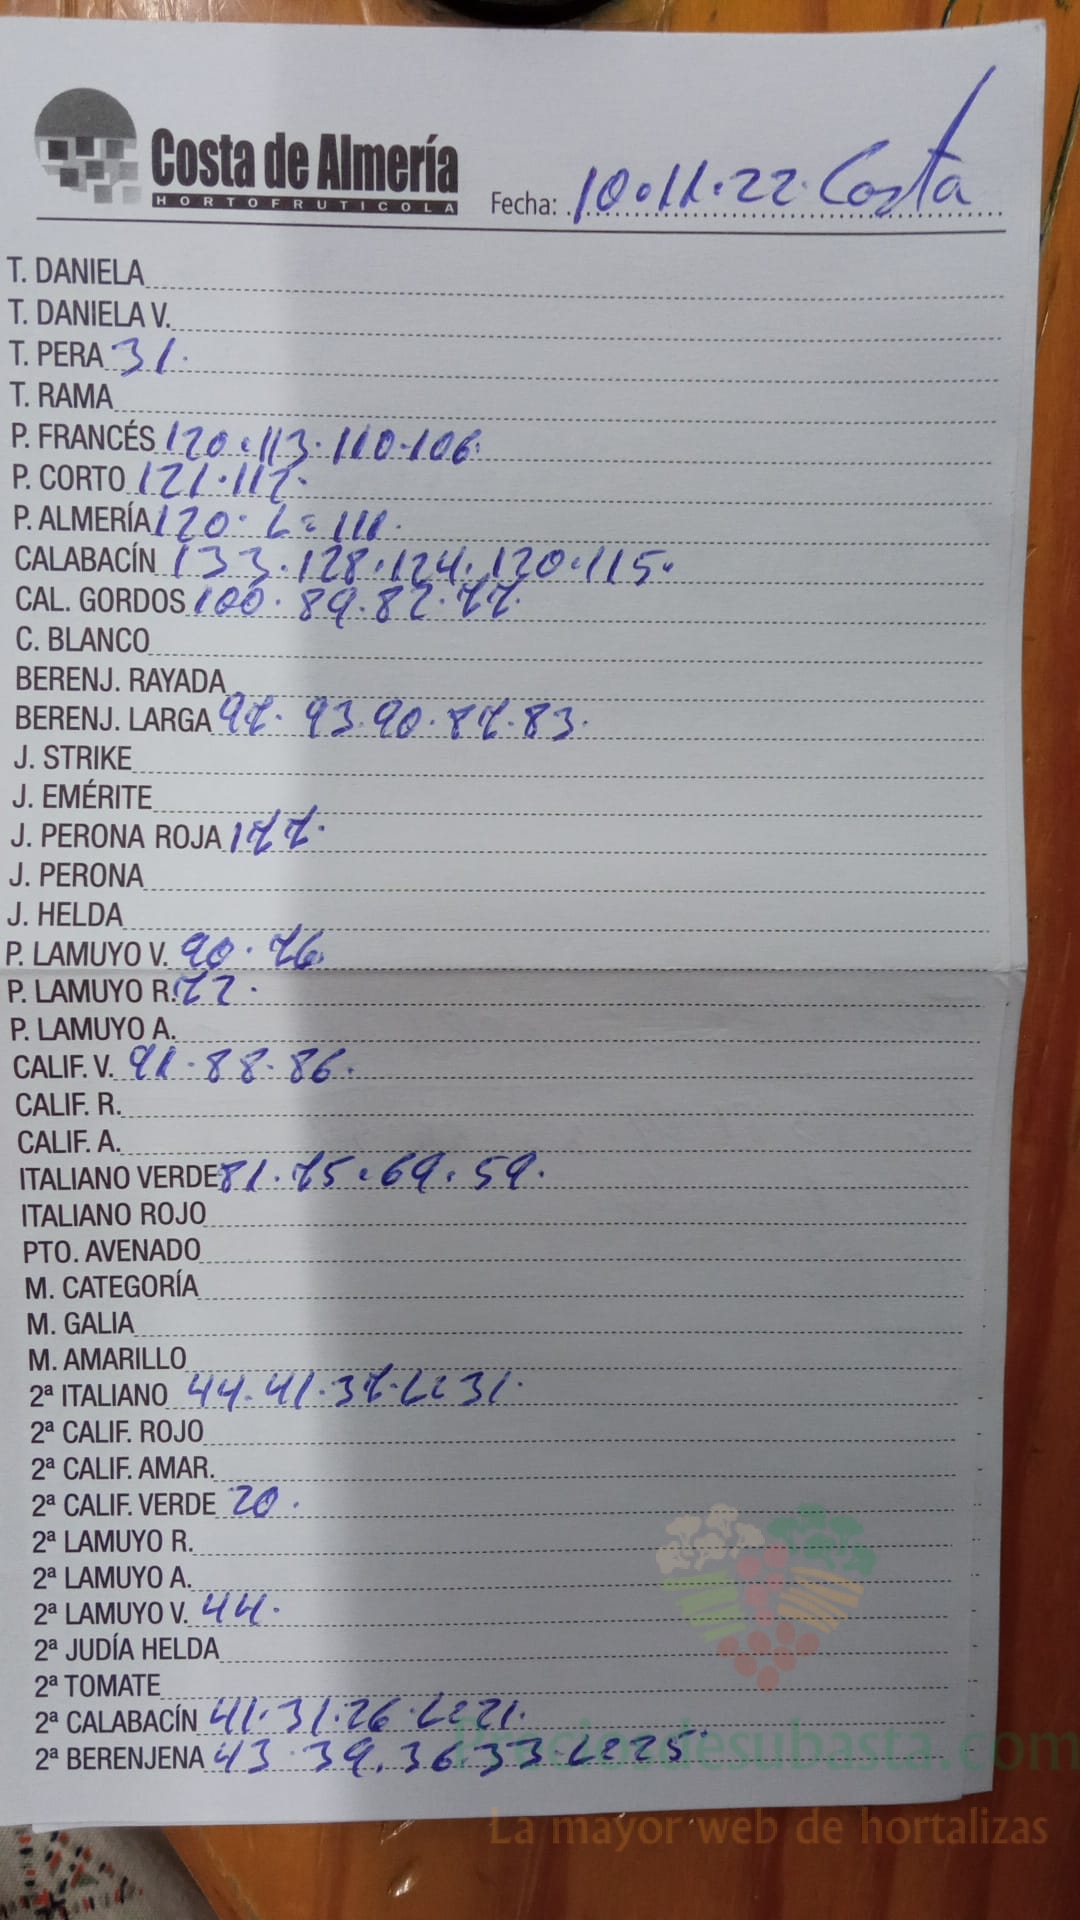 Costa de Almería
HORTOFRUTICOLA
Fecha: 10.11.22. Costa
T. DANIELA
T. DANIELA V.
T. PERA 31.
T. RAMA
P. FRANCÉS 120.113.110.106.
P. CORTO 121.117.
P. ALMERÍA 120. L=111.
CALABACÍN 133.128.124.120.115.
CAL. GORDOS 100.89.82.77.
C. BLANCO
BERENJ. RAYADA
BERENJ. LARGA 97.93.90.87.83.
J. STRIKE
J. EMÉRITE
J. PERONA ROJA 177.
J. PERONA
J. HELDA
P. LAMUYO V. 90.76.
P. LAMUYO R. 72.
P. LAMUYO A.
CALIF. V. 91.88.86.
CALIF. R.
CALIF. A.
ITALIANO VERDE 81.75.69.59.
ITALIANO ROJO
PTO. AVENADO
M. CATEGORÍA
M. GALIA
M. AMARILLO
2ª ITALIANO 44.41.37.L=31.
2ª CALIF. ROJO
2ª CALIF. AMAR.
2ª CALIF. VERDE 20.
2ª LAMUYO R.
2ª LAMUYO A.
2ª LAMUYO V. 44.
2ª JUDÍA HELDA
2ª TOMATE
2ª CALABACÍN 41.31.26.L=21.
2ª BERENJENA 43.39.36.33.L=25.
Preciosdesubasta.com
La mayor web de hortalizas